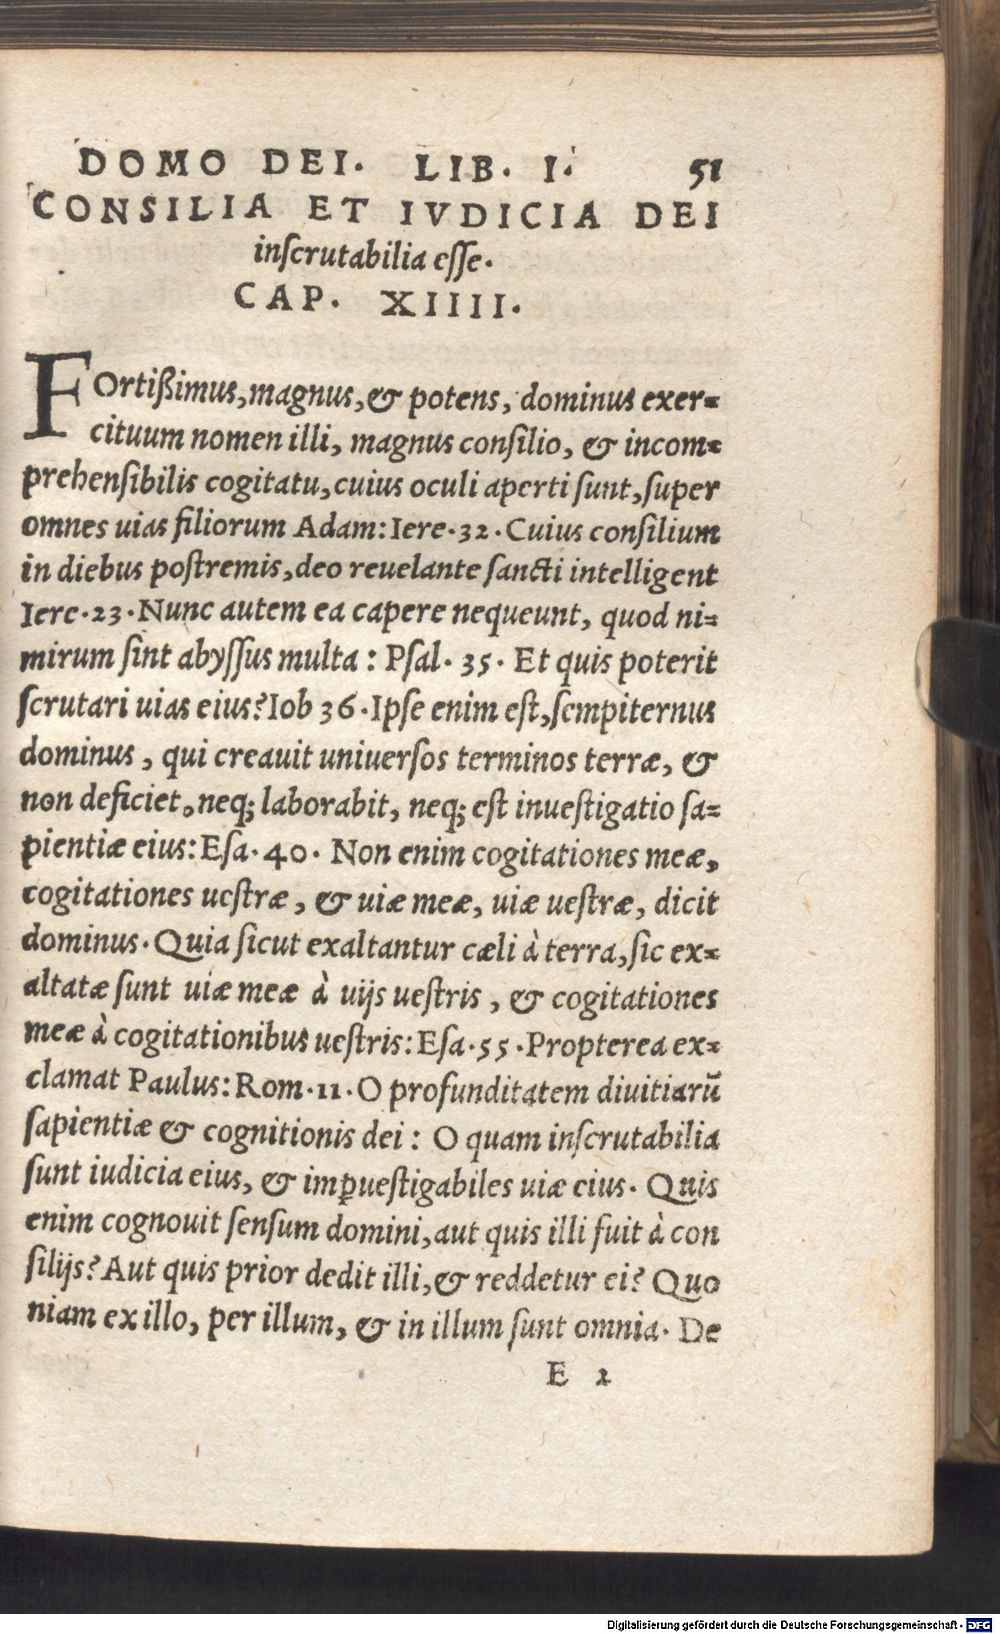 DOMO DEI. LIB. I. 51
CONSILIA ET IVDICIA DEI
inſcrutabilia eſſe.
CAP. XIIII.
FOrtiſſimus, magnus, & potens, dominus exer-
cituum nomen illi, magnus conſilio, & incom-
prehenſibilis cogitatu, cuius oculi aperti ſunt, ſuper
omnes uias filiorum Adam: Iere. 32. Cuius conſilium
in diebus poſtremis, deo reuelante ſancti intelligent
Iere. 23. Nunc autem ea capere nequeunt, quod ni-
mirum ſint abyſſus multa: Pſal. 35. Et quis poterit
ſcrutari uias eius? Iob 36. Ipſe enim eſt, ſempiternus
dominus, qui creauit uniuerſos terminos terræ, &
non deficiet, neq; laborabit, neq; eſt inueſtigatio ſa-
pientiæ eius: Eſa. 40. Non enim cogitationes meæ,
cogitationes ueſtræ, & uiæ meæ, uiæ ueſtræ, dicit
dominus. Quia ſicut exaltantur cæli à terra, ſic ex-
altatæ ſunt uiæ meæ à uijs ueſtris, & cogitationes
meæ à cogitationibus ueſtris: Eſa. 55. Propterea ex-
clamat Paulus: Rom. 11. O profunditatem diuitiarū
ſapientiæ & cognitionis dei: O quam inſcrutabilia
ſunt iudicia eius, & imꝑueſtigabiles uiæ eius. Quis
enim cognouit ſenſum domini, aut quis illi fuit à con
ſilijs? Aut quis prior dedit illi, & reddetur ei? Quo
niam ex illo, per illum, & in illum ſunt omnia. De
E 2
Digitalisierung gefördert durch die Deutsche Forschungsgemeinschaft - DFG